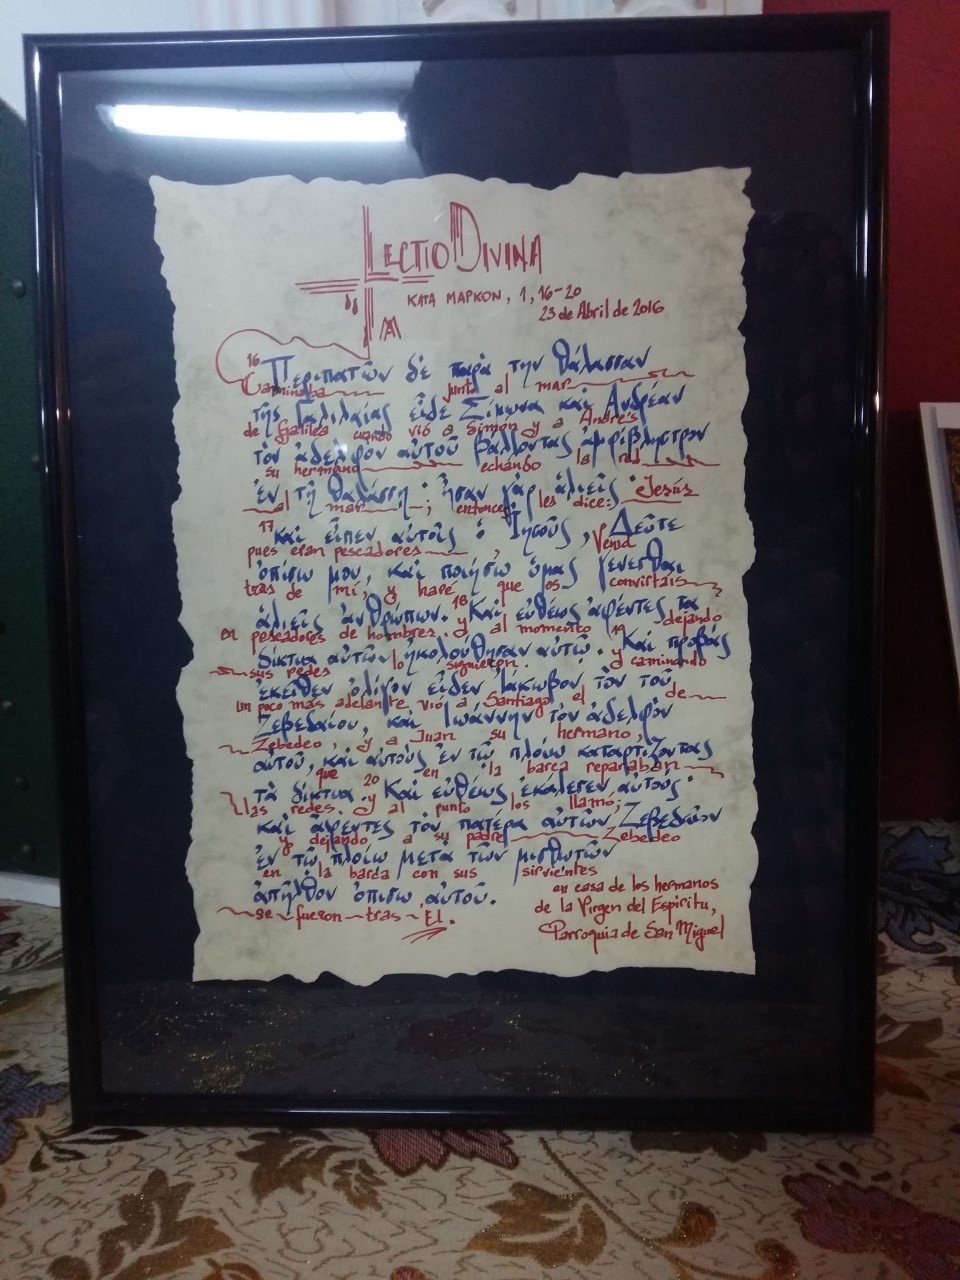 LECTIO DIVINA
ΚΑΤΑ ΜΑΡΚΟΝ, 1, 16-20
23 de Abril de 2016
16 Περιπατῶν δὲ παρὰ την θάλασσαν
Caminaba junto al mar
τῆς Γαλιλαίας εἶδε Σίμωνα καὶ Ανδρέαν
de Galilea cuando vió a Simon y a Andrés
τὸν ἀδελφὸν αὐτοῦ βάλλοντας ἀμφίβληστρον
su hermano echando la red
ἐν τῇ θαλάσσῃ ; ἦσαν γὰρ ἁλιεῖς ·
al mar ; entonces les dice: Jesús
17 καὶ εἶπεν αὐτοῖς ὁ Ἰησοῦς, Δεῦτε
pues eran pescadores , Venid
ὀπίσω μου, καὶ ποιήσω ὑμᾶς γενέσθαι
tras de mí, y haré que os convirtais
ἁλιεῖς ἀνθρώπων. 18 Καὶ εὐθέως ἀφέντες τα
en pescadores de hombres. y al momento dejando
δίκτυα αὐτῶν ἠκολούθησαν αὐτῷ. 19 Καὶ προβὰς
sus redes lo siguieron. y caminando
ἐκεῖθεν ὀλίγον εἶδεν Ἰάκωβον τὸν τοῦ
un poco más adelante vió a Santiago el de
Ζεβεδαίου, καὶ Ιωάννην τὸν ἀδελφὸν
Zebedeo, y a Juan su hermano,
αὐτοῦ, καὶ αὐτοὺς ἐν τῷ πλοίῳ καταρτίζοντας
que en la barca reparaban
τὰ δίκτυα. 20 Καὶ εὐθέως ἐκάλεσεν αὐτούς·
las redes. y al punto los llamó;
καὶ ἀφέντες τὸν πατέρα αὐτῶν Ζεβεδαῖον
y dejando a su padre Zebedeo
ἐν τῷ πλοίῳ μετὰ τῶν μισθωτῶν
en la barca con sus sirvientes
ἀπῆλθον ὀπίσω αὐτοῦ.
se fueron tras El.
en casa de los hermanos
de la Virgen del Espíritu,
Parroquia de San Miguel